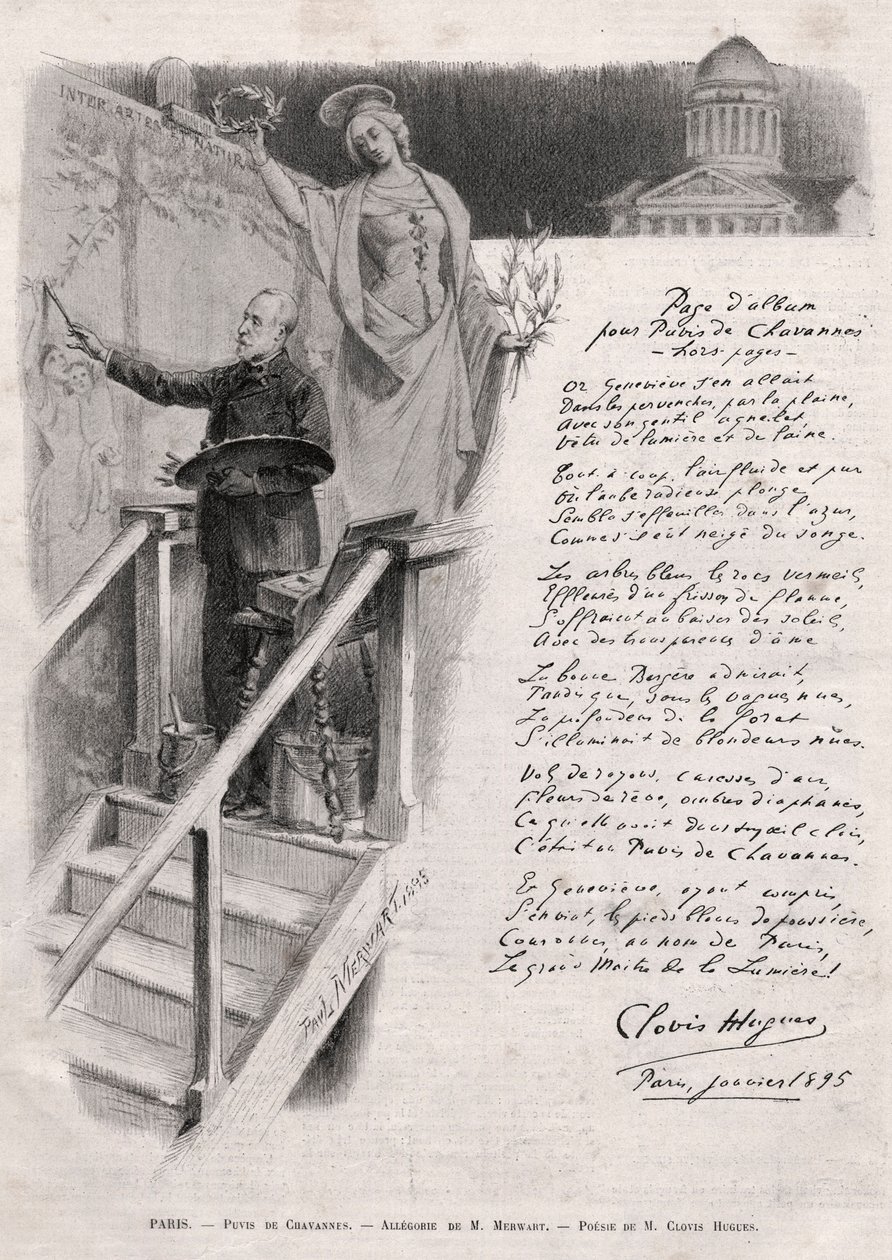 INTER ARTES ET NATUR
Page d'album
pour Puvis de Chavannes
– hors-pages –
Or Geneviève s'en allait
Dans les pervenches, par la plaine,
Avec son gentil agnelet,
Vêtu de lumière et de laine.
Tout à coup, l'air fluide et pur
Où l'aube radieuse plonge
Sembla s'effeuiller dans l'azur,
Comme s'il eût neigé du songe.
Les arbres bleus, les rocs vermeils,
Effleurés d'un frisson de flamme,
S'offraient au baiser des soleils,
Avec des transparences d'âme
La bonne Bergère admirait,
Tandis que, sous les vagues nues,
La profondeur de la forêt
S'illuminait de blondeurs nues.
Vols de rayons, caresses d'air,
fleurs de rêve, ombres diaphanes,
Ce qu'elle avait dans son œil clair,
C'était un Puvis de Chavannes.
Et Geneviève, ayant compris,
S'en vint, les pieds blancs de poussière,
Couronner, au nom de Paris,
Le grand Maître de la Lumière!
Clovis Hugues
Paris, janvier 1895
PAUL MERWART. 1895
PARIS. — PUVIS DE CHAVANNES. — ALLÉGORIE DE M. MERWART. — POÉSIE DE M. CLOVIS HUGUES.